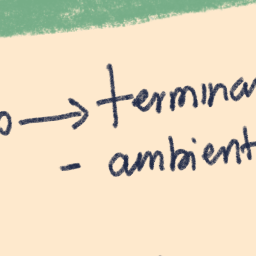 o → termina
- ambient